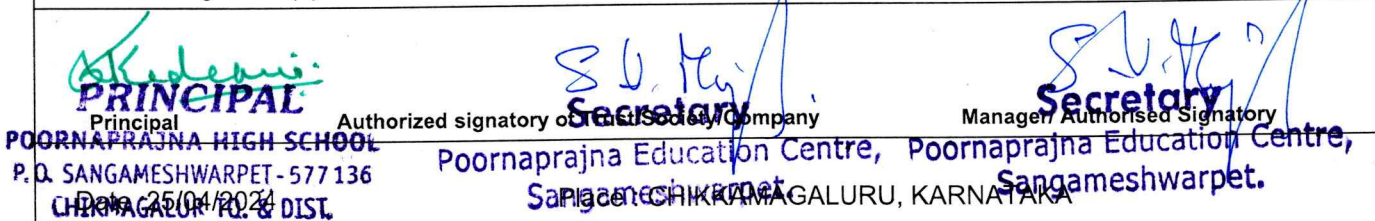 PRINCIPAL
Principal
POORNAPRAJNA HIGH SCHOOL
P.O. SANGAMESHWARPET-577136
CHIKMAGALUR TQ. & DIST.
Date 25/04/2024
S. V.
Secretary
Authorized signatory of Trust/Society/Company
Poornaprajna Education Centre,
Sangameshwarpet.
Place : CHIKKAMAGALURU, KARNATAKA
S. V.
Secretary
Manager/ Authorised Signatory
Poornaprajna Education Centre,
Sangameshwarpet.